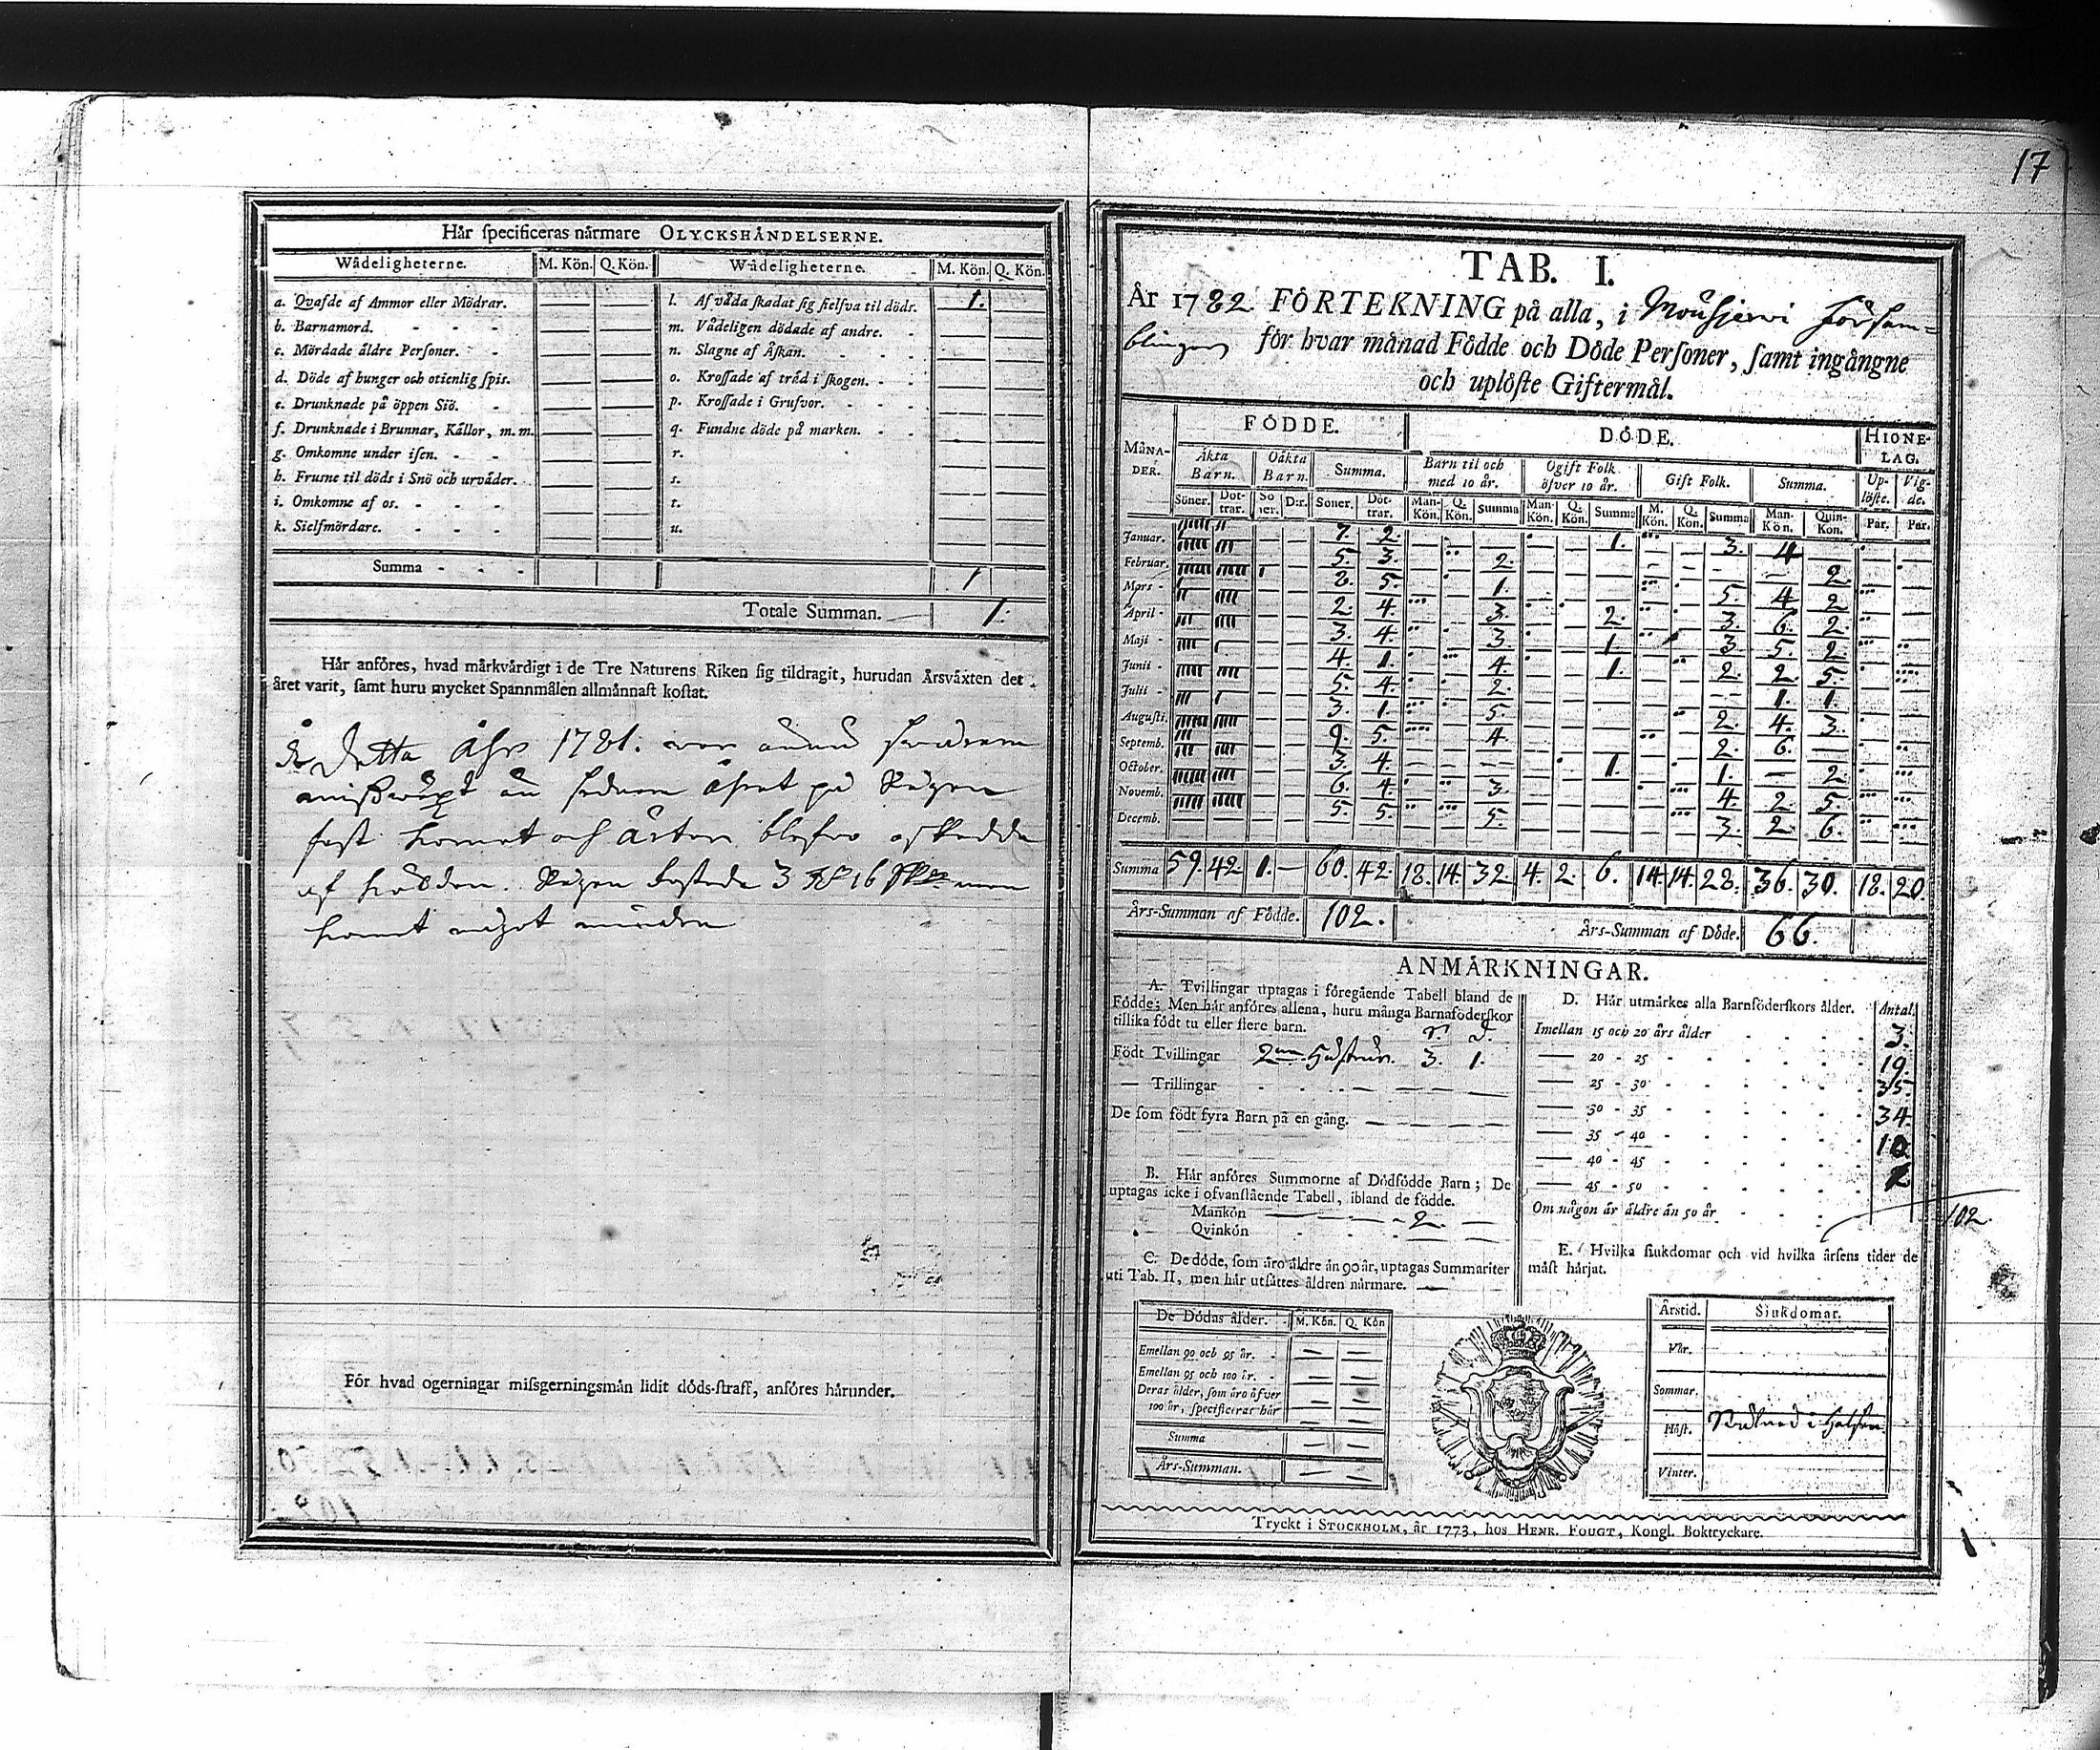 17
Här specificeras närmare OLYCKSHÄNDELSERNE.
Wådeligheterne. M. Kön. Q. Kön. Wådeligheterne. M. Kön. Q. Kön.
a. Qvafde af Ammor eller Mödrar. — — l. Af våda skadat sig sielfva til döds. 1. —
b. Barnamord. — — m. Vådeligen dödade af andre. — —
c. Mördade äldre Personer. — — n. Slagne af Åskan. — —
d. Döde af hunger och otienlig spis. — — o. Krossade af träd i skogen. — —
e. Drunknade på öppen Siö. — — p. Krossade i Grufvor. — —
f. Drunknade i Brunnar, Källor, m. m. — — q. Fundne döde på marken. — —
g. Omkomne under isen. — — r. — —
h. Frusne til döds i Snö och urväder. — — s. — —
i. Omkomne af os. — — t. — —
k. Sielfmördare. — — u. — —
Summa - - - 1
Totale Summan. 1.
Här anföres, hvad märkvärdigt i de Tre Naturens Riken sig tildragit, hurudan Årsväxten det
året varit, samt huru mycket Spannmålen allmännast kostat.
Detta åhr 1781. var
missväxt åhret på Rågen
fast kornet och ärter blefvo oskadde
af kölden. Rågen kostade 3 16 men
kornet något mindre
För hvad ogerningar missgerningsmän lidit döds-straff, anföres härunder.
TAB. I.
År 1782 FÖRTEKNING på alla, i Mouhjerwi Församblingen
för hvar månad Födde och Döde Personer, samt ingångne
och uplöste Giftermål.
MÅNADER. FÖDDE. DÖDE. HIONELAG.
Äkta Barn. Oäkta Barn. Summa. Barn til och med 10 år. Ogift Folk öfver 10 år. Gift Folk. Summa. Uplöste. Vigde.
Söner. Döttrar. Söner. D:r. Söner. Döttrar. Man-Kön. Q. Kön. Summa Man-Kön. Q. Kön. Summa M. Kön. Q. Kön. Summa Man-Kön. Quin-Kön. Par. Par.
Januar. 7. 2. — 1. 3. 4 —
Februar. 5. 3. 2. — — — 2
Mars 8. 5. 1. — 5. 4 2
April 2. 4. 3. 2. 3. 6. 2
Maji 3. 4. 3. 1. 3. 5. 2.
Junii 4. 1. 4. 1. 2. 2. 5.
Julii 5. 4. 2. — — 1. 1.
Augusti. 3. 1. 5. — 2. 4. 3.
Septemb. 9. 5. 4. — 2. 6. —
October. 3. 4. — 1. 1. — 2
Novemb. 6. 4. 3. — 4. 2. 5.
Decemb. 5. 5. 5. — 3. 2. 6.
Summa 59. 42. 1. — 60. 42. 18. 14. 32. 4. 2. 6. 14. 14. 28. 36. 30. 18. 20.
Års-Summan af Födde. 102. Års-Summan af Döde. 66.
ANMÄRKNINGAR.
A. Tvillingar uptagas i föregående Tabell bland de
Födde; Men här anföres allena, huru många Barnaföderskor
tillika födt tu eller flere barn.
S. D.
Födt Tvillingar 2ne Hustrur. 3. 1.
— Trillingar — — —
De som födt fyra Barn på en gång. — — — — —
B. Här anföres Summorne af Dödfödde Barn; De
uptagas icke i ofvanstående Tabell, ibland de födde.
Mankön — 2. —
Qvinkön
C. De döde, som äro äldre än 90 år, uptagas Summariter
uti Tab. II, men här utsättes åldren närmare. —
De Dödas ålder. M. Kön. Q. Kön
Emellan 90 och 95 år. — —
Emellan 95 och 100 år. — —
Deras ålder, som äro öfver
100 år, specificeras här — —
Summa — —
Års-Summan. — —
D. Här utmärkes alla Barnföderskors ålder. Antal.
Imellan 15 och 20 års ålder 3.
— 20 - 25 19.
— 25 - 30 35.
— 30 - 35 34.
— 35 - 40 10
— 40 - 45
— 45 - 50
Om någon är äldre än 50 år 102.
E. Hvilka siukdomar och vid hvilka årsens tider de
mäst härjat.
Årstid. Siukdomar.
Vår.
Sommar.
Höst. i Halsen.
Vinter.
Tryckt i STOCKHOLM, år 1773, hos HENR. FOUGT, Kongl. Boktryckare.